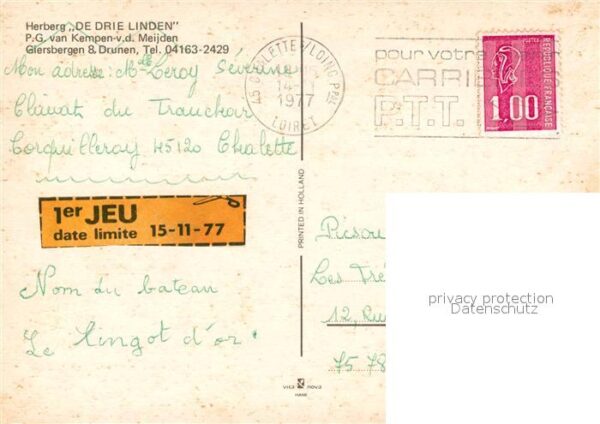 Herberg „DE DRIE LINDEN"
P.G. van Kempen-v.d. Meijden
Giersbergen 8, Drunen, Tel. 04163-2429
Mon adresse: Mlle Leroy Séverine
du
45120 Chalette
1er JEU
date limite 15-11-77
Nom du bateau
Le lingot d'or
45 CHALETTE S/LOING PPAL
14-11
1977
LOIRET
pour votre
CARRIE
P.T.T.
REPUBLIQUE FRANCAISE
1,00
PRINTED IN HOLLAND
Picsou
Les Tré
12, Ru
75 78
vita nova
privacy protection
Datenschutz